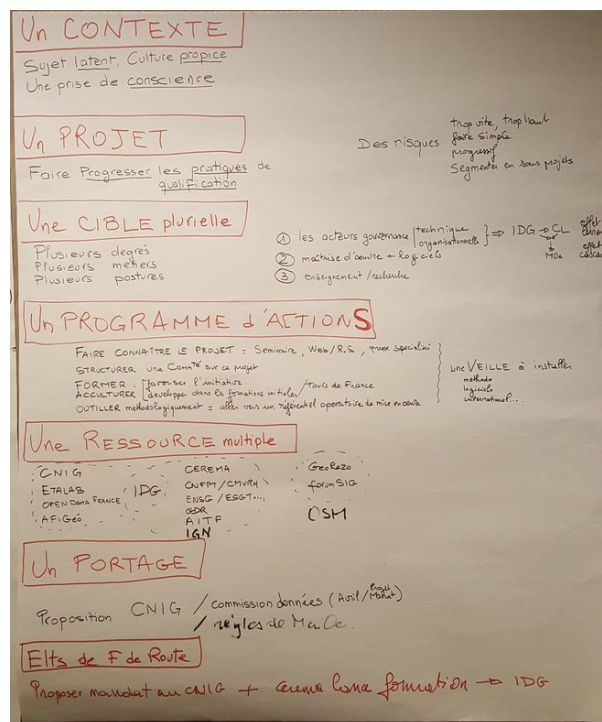 Un CONTEXTE
Sujet latent, Culture propice
Une prise de conscience
Un PROJET
Faire Progresser les pratiques de
qualification
Des risques
trop vite, trop haut
faire simple
progressif
Segmenter en sous projets
Une CIBLE plurielle
Plusieurs degrés
Plusieurs métiers
Plusieurs postures
① les acteurs gouvernance technique
organisationnelle ⇒ IDG → CL effet
MOe effet
② maîtrise d'oeuvre + logiciels
③ enseignement/recherche
Un PROGRAMME d'ACTIONS
FAIRE CONNAÎTRE LE PROJET = Seminaire, Web/R.S,
STRUCTURER une Comté sur ce projet
FORMER : favoriser l'initiative
ACCULTURER développer dans les formations initiales / Tours de France
OUTILLER méthodologiquement = aller vers un référentiel operatoire de mise en oeuvre
une VEILLE à installer
methodo
logiciels
international...
Une RESSOURCE multiple
CNIG
ETALAB
OPEN Data FRANCE
AFIGéo
IDG
CEREMA
CNFPT/CMVRH
ENSG/ESGT...
GDR
AITF
IGN
GeoRezo
forumSIG
OSM
Un PORTAGE
Proposition CNIG / commission données (Avril/Projet Mandat)
/ règles de Men Oe.
Elts de F de Route
Proposer mandat au CNIG + cerema formation → IDG